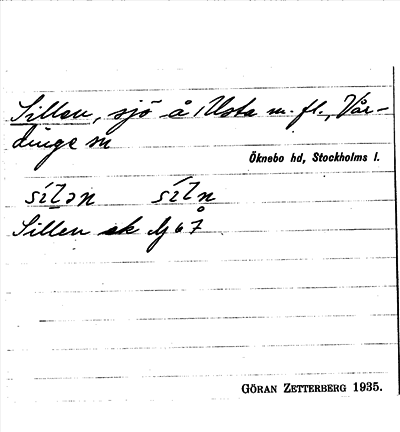 Sillen, sjö å Usta m. fl., Vår-
dinge sn
Öknebo hd, Stockholms l.
Sillen ek bl 67
GÖRAN ZETTERBERG 1935.